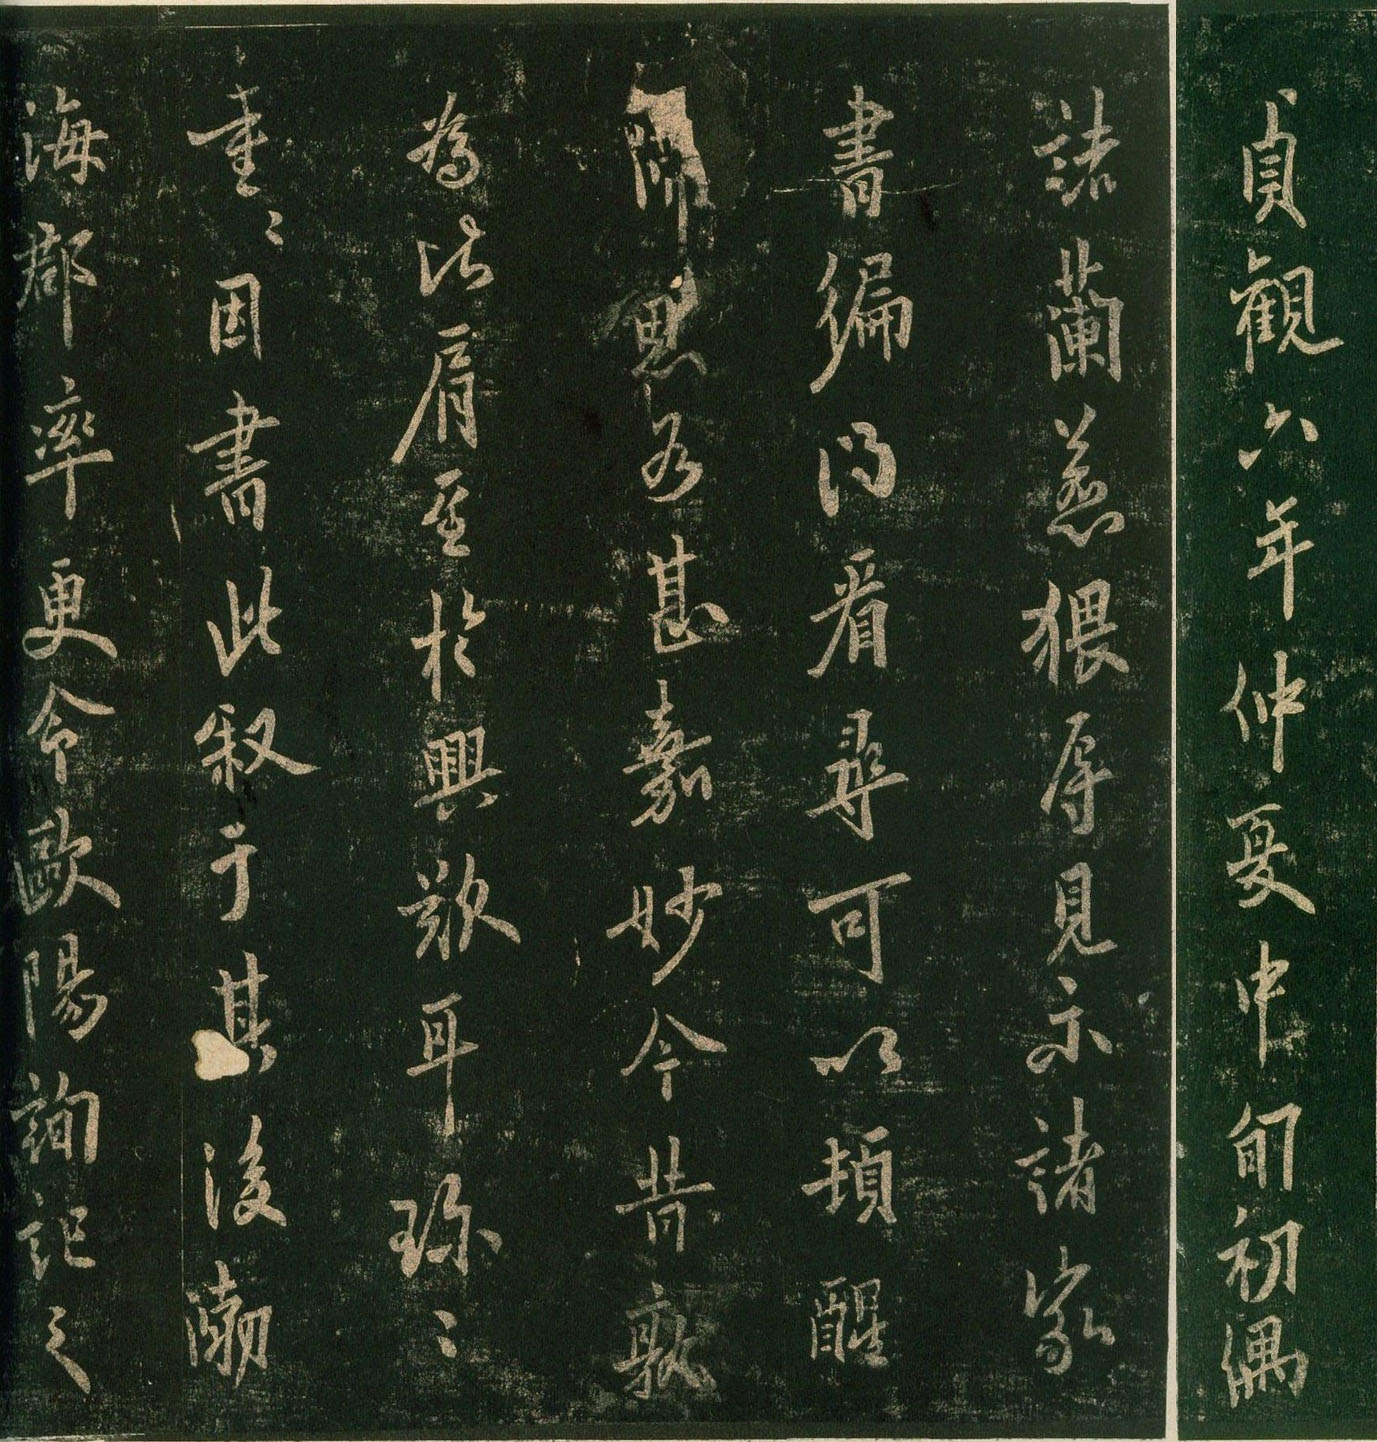 貞觀六年仲夏中旬初偶
詣蘭惹猥辱見示諸家
書編得看尋可以頓醒
開思甚嘉妙今昔孰
為比肩至於興歎耳珍〻
重〻因書此叙于其後渤
海郡率更令歐陽詢記之